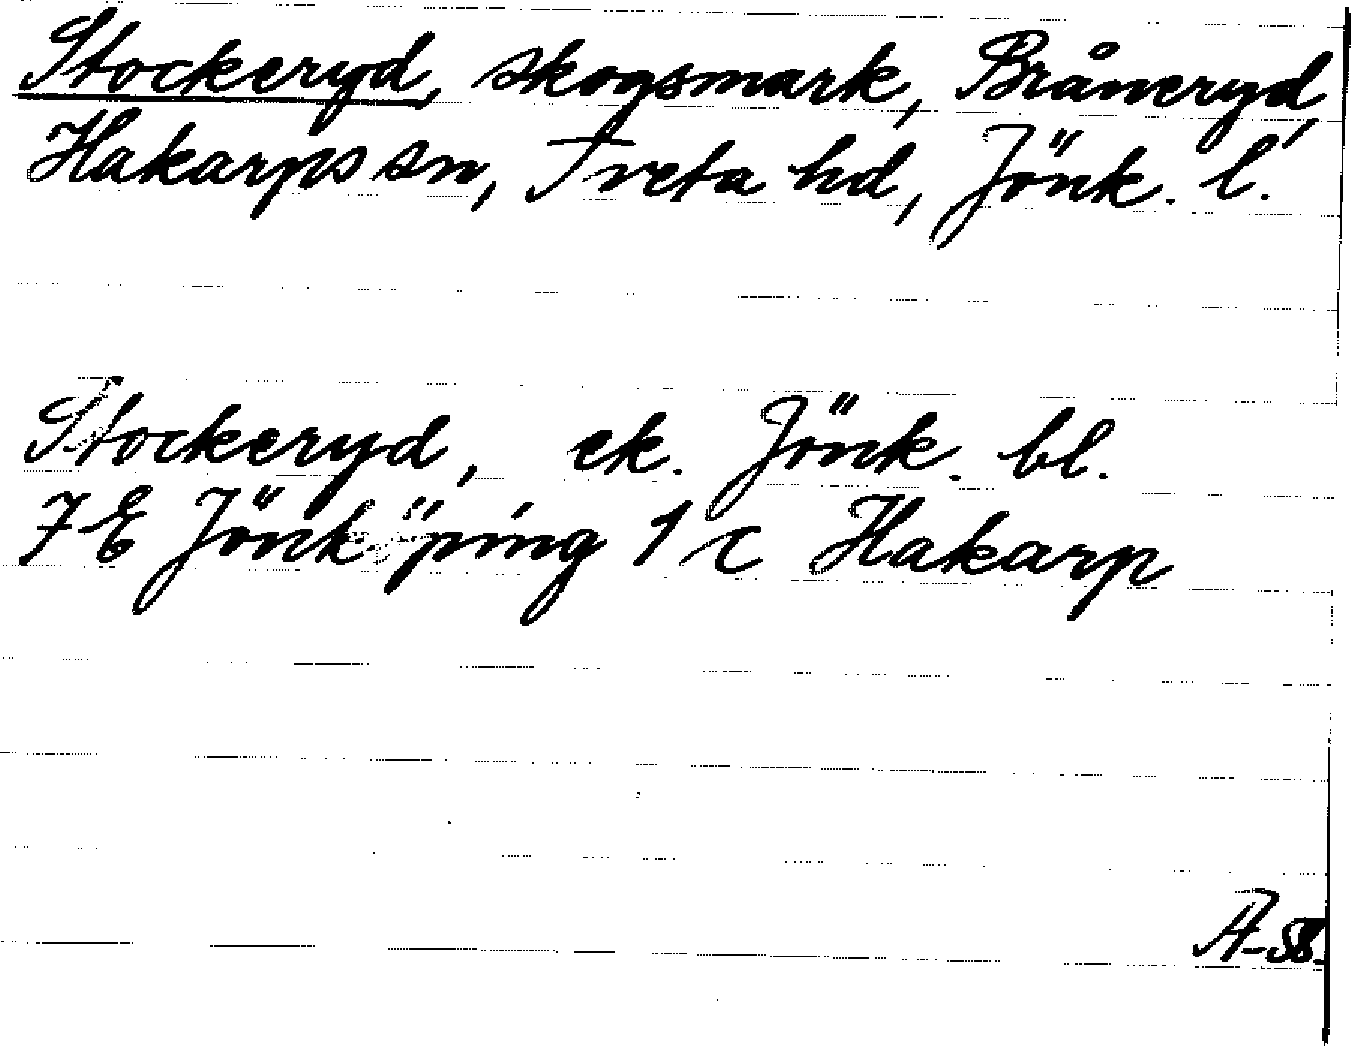 Stockeryd, skogsmark, Bråneryd,
Hakarps sn, Tveta hd, Jönk. l.
Stockeryd, ek. Jönk. bl.
7E Jönköping 1 c Hakarp